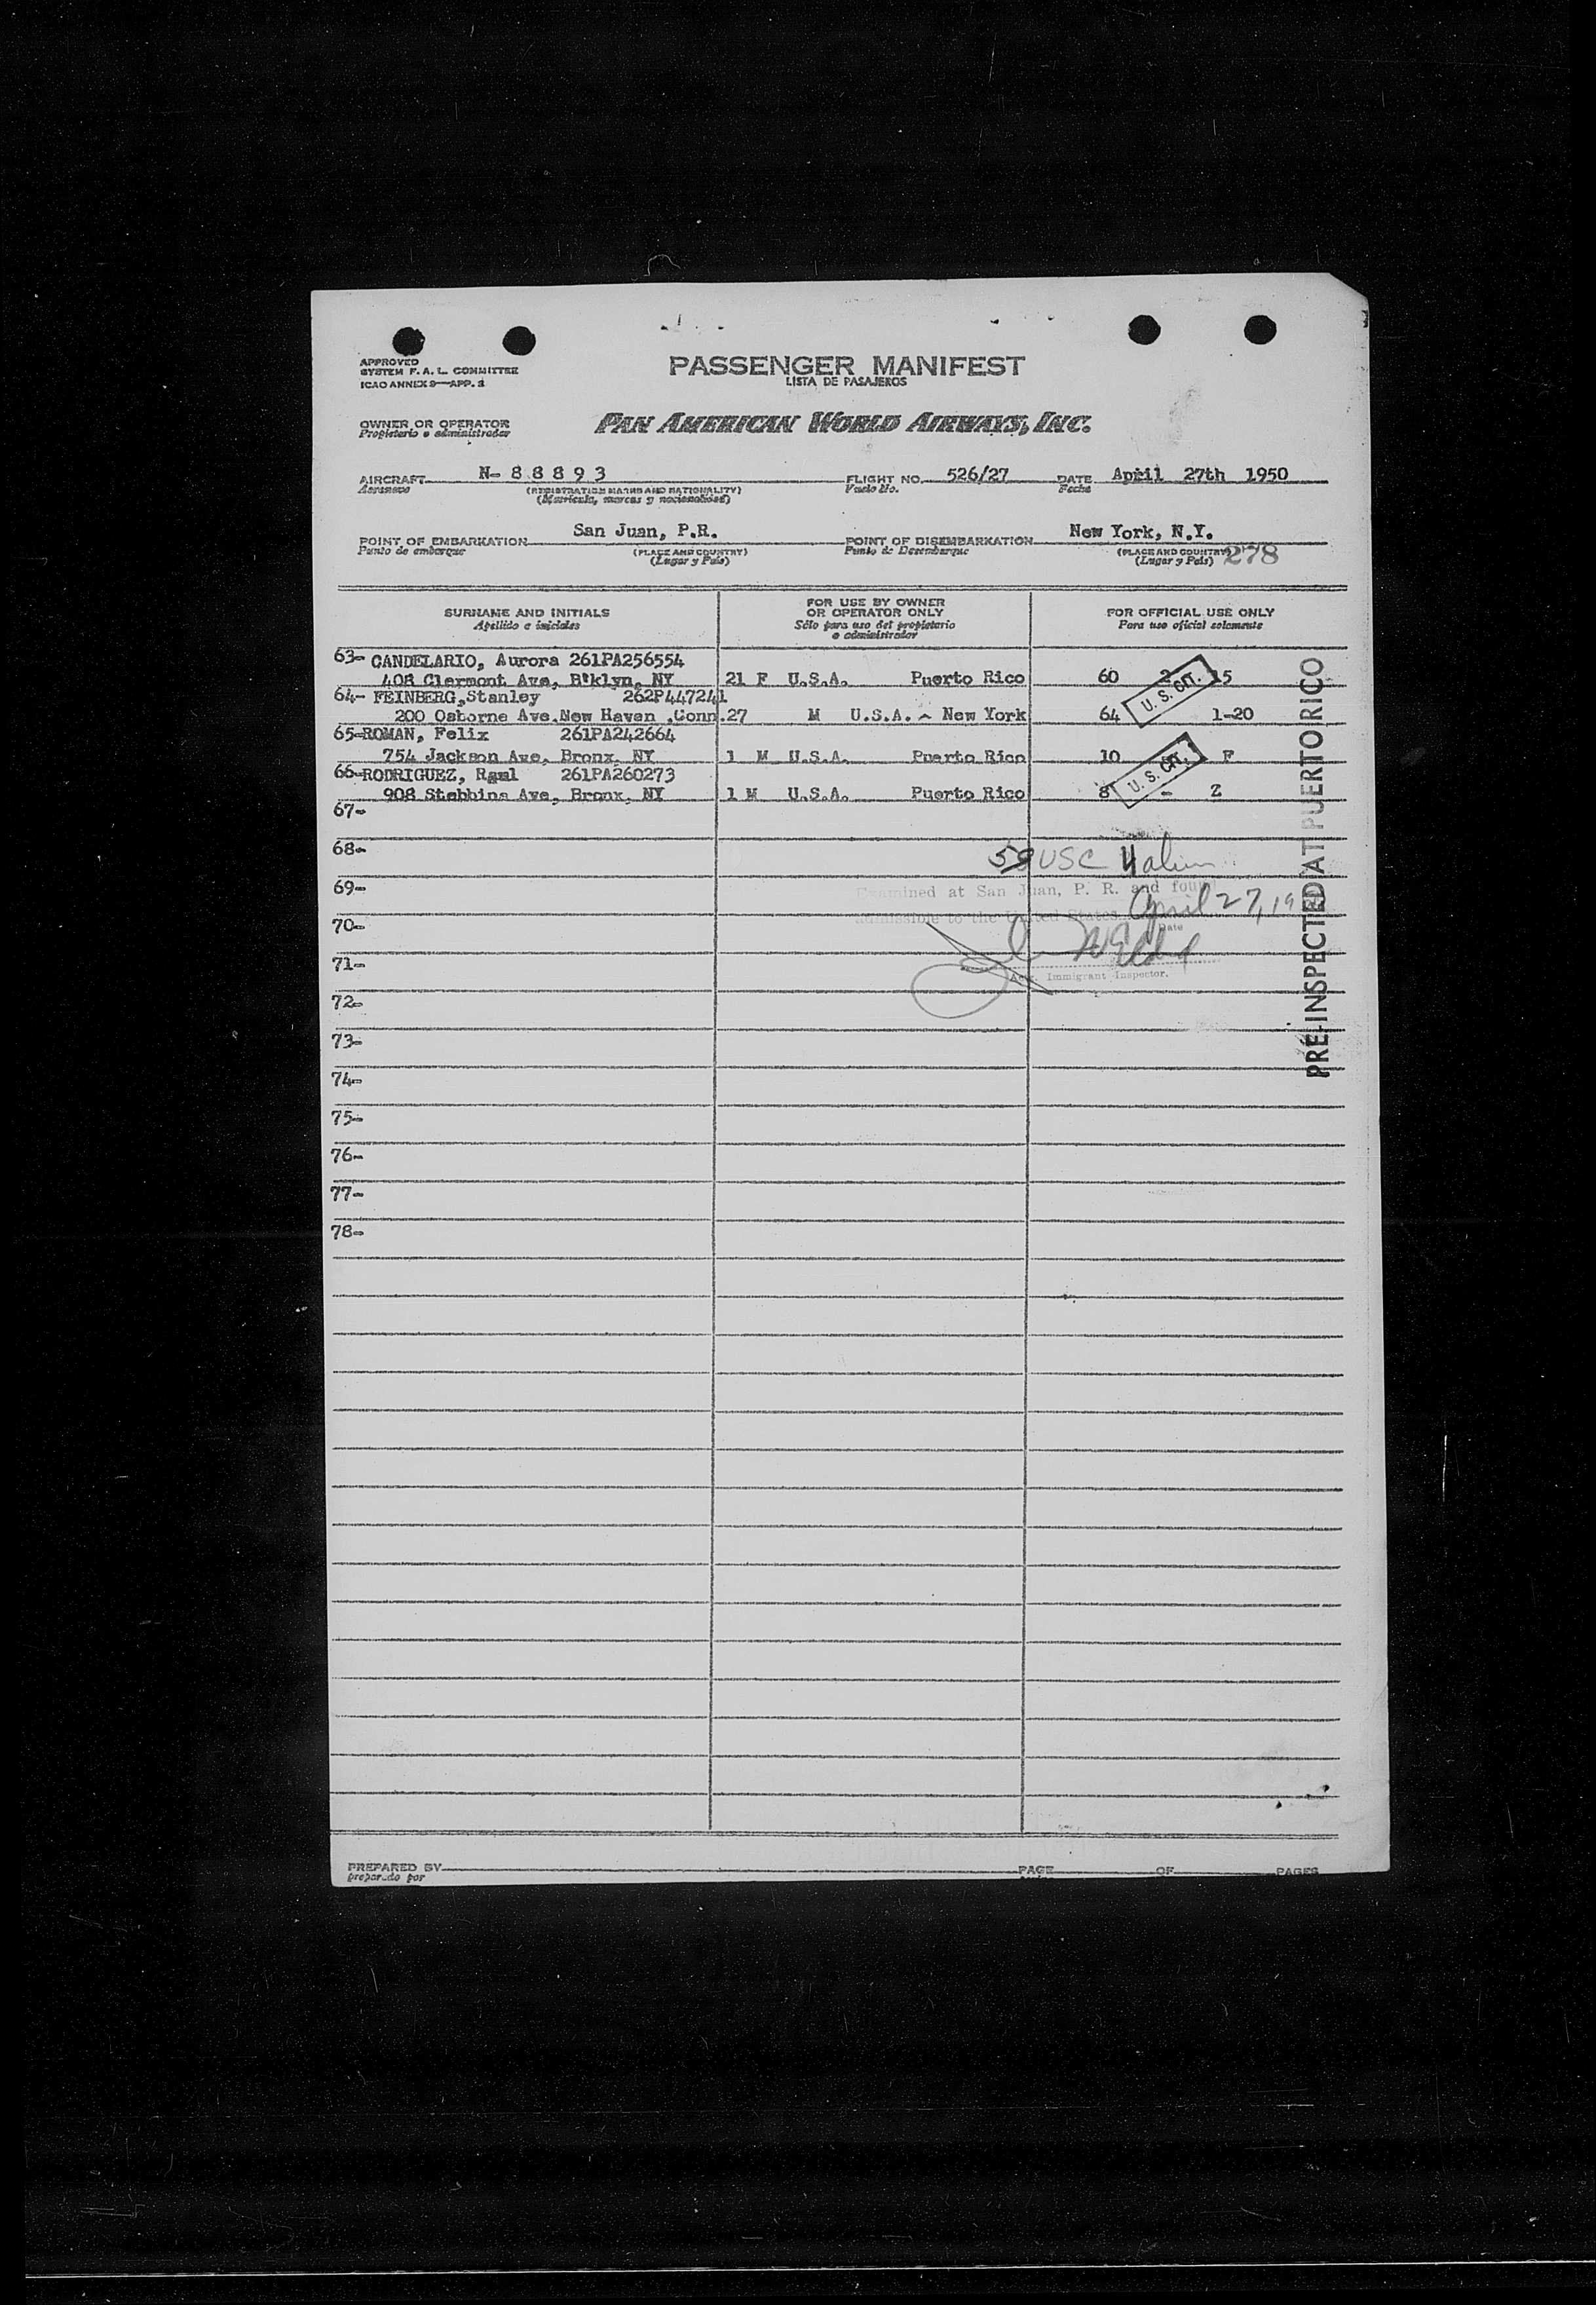 APPROVED
SYSTEM F. A. L. COMMITTEE
ICAO ANNEX 9—APP. 2
PASSENGER MANIFEST
LISTA DE PASAJEROS
OWNER OR OPERATOR
Propietario o administrador
PAN AMERICAN WORLD AIRWAYS, INC.
AIRCRAFT N- 8 8 8 9 3 FLIGHT NO. 526/27 DATE April 27th 1950
Aeronave (REGISTRATION MARKS AND NATIONALITY) Vuelo No. Fecha
(Matrícula, marcas y nacionalidad)
POINT OF EMBARKATION San Juan, P.R. POINT OF DISEMBARKATION New York, N.Y.
Punto de embarque (PLACE AND COUNTRY) Punto de Desembarque (PLACE AND COUNTRY) 278
(Lugar y País) (Lugar y País)
SURNAME AND INITIALS FOR USE BY OWNER OR OPERATOR ONLY FOR OFFICIAL USE ONLY
Apellido e iniciales Sólo para uso del propietario o administrador Para uso oficial solamente
63- CANDELARIO, Aurora 261PA256554
408 Clermont Ave, B'klyn, NY 21 F U.S.A. Puerto Rico 60 2 15
U. S. CIT.
64- FEINBERG,Stanley 262P447241
200 Osborne Ave.New Haven ,Conn.27 M U.S.A. - New York 64 1-20
65-ROMAN, Felix 261PA242664
754 Jackson Ave, Bronx, NY 1 M U.S.A. Puerto Rico 10 F
U. S. CIT.
66-RODRIGUEZ, Raul 261PA260273
908 Stebbins Ave, Bronx, NY 1 M U.S.A. Puerto Rico 8 - Z
67-
68-
59 USC 4 alien
69-
Examined at San Juan, P. R. and found
admissible to the United States April 27, 19
Date
70-
71-
Immigrant Inspector.
72-
73-
74-
75-
76-
77-
78-
PRE-INSPECTED AT PUERTO RICO
PREPARED BY PAGE OF PAGES
preparado por